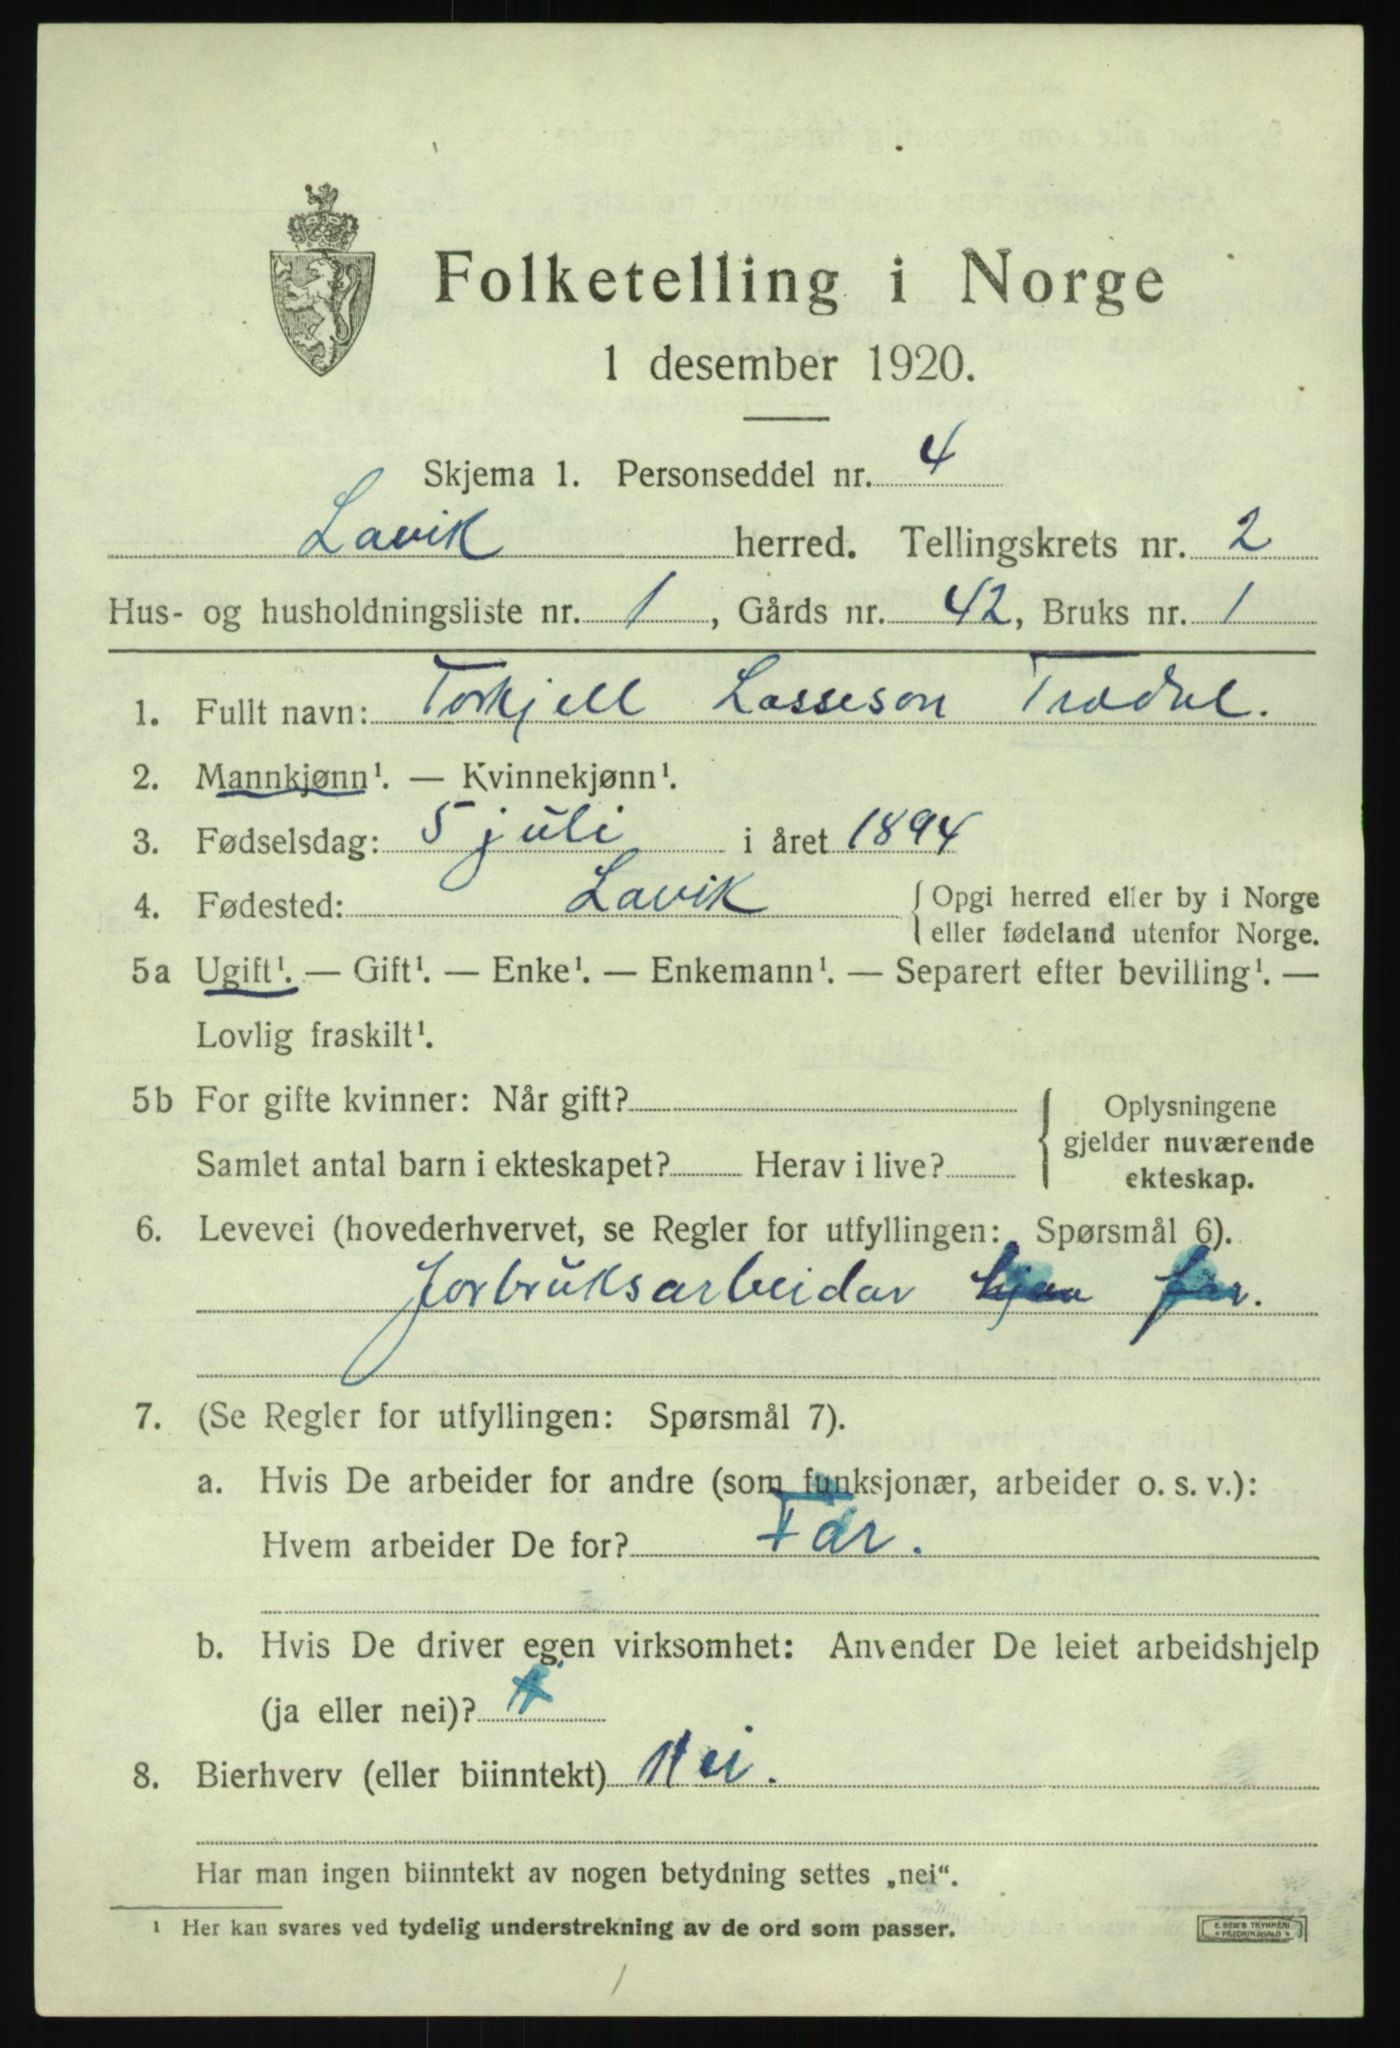 Folketelling i Norge
1 desember 1920.
Skjema 1. Personseddel nr. 4
Lavik herred. Tellingskrets nr. 2
Hus- og husholdningsliste nr. 1, Gårds nr. 42, Bruks nr. 1
1. Fullt navn: Torkjell Lasseson Tredal.
2. Mannkjønn¹. — Kvinnekjønn¹.
3. Fødselsdag: 5 juli i året 1894
4. Fødested: Lavik { Opgi herred eller by i Norge
eller fødeland utenfor Norge.
5a Ugift¹. — Gift¹. — Enke¹. — Enkemann¹. — Separert efter bevilling¹. —
Lovlig fraskilt¹.
5b For gifte kvinner: Når gift? { Oplysningene
gjelder nuværende
Samlet antal barn i ekteskapet? Herav i live?
ekteskap.
6. Levevei (hovederhvervet, se Regler for utfyllingen: Spørsmål 6).
Jorbruksarbeidar hjaa far.
7. (Se Regler for utfyllingen: Spørsmål 7).
a. Hvis De arbeider for andre (som funksjonær, arbeider o. s. v.):
Hvem arbeider De for? Far.
b. Hvis De driver egen virksomhet: Anvender De leiet arbeidshjelp
(ja eller nei)?
8. Bierhverv (eller biinntekt) Nei.
Har man ingen biinntekt av nogen betydning settes „nei“.
¹ Her kan svares ved tydelig understrekning av de ord som passer.
E. SEM'S TRYKKERI
* FREDRIKSHALD *